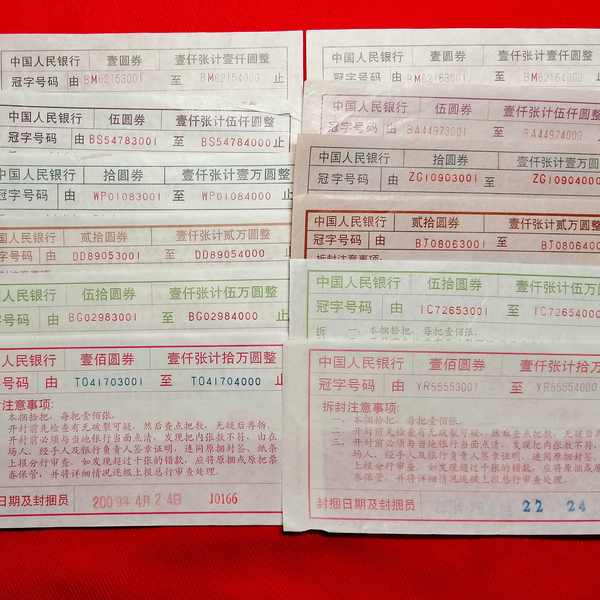 中国人民银行 壹圆券 壹仟张计壹仟圆整
冠字号码 由 BM62153001 至 BM62154000 止
中国人民银行 伍圆券 壹仟张计伍仟圆整
冠字号码 由 BS54783001 至 BS54784000 止
中国人民银行 拾圆券 壹仟张计壹万圆整
冠字号码 由 WP01083001 至 WP01084000 止
中国人民银行 贰拾圆券 壹仟张计贰万圆整
冠字号码 由 DD89053001 至 DD89054000 止
拆封注意事项:
中国人民银行 伍拾圆券 壹仟张计伍万圆整
冠字号码 由 BG02983001 至 BG02984000 止
人民银行 壹佰圆券 壹仟张计拾万圆整
字号码 由 TO41703001 至 TO41704000 止
封注意事项:
本捆拾把,每把壹佰张。
开封前先检查有无破裂可疑,然后查点把数,无疑后再拆。
开封前必须与当地银行当面点清,发现把内张数不符,由在
场人、经手人及银行负责人签章证明,连同原捆封签、纸条
上报分行审查。如发现超过十张的错款,应将原捆或原把票
券保管,并将详细情况逐级上报总行审查处理。
日期及封捆员 2009年4月24日 J0166
中国人民银行 壹圆券 壹仟张计壹仟圆整
冠字号码 由 BM62163001 至 BM62164000 止
中国人民银行 伍圆券 壹仟张计伍仟圆整
冠字号码 由 BA44973001 至 BA44974000
中国人民银行 拾圆券 壹仟张计壹万圆
冠字号码 由 ZG10903001 至 ZG10904000
中国人民银行 贰拾圆券 壹仟张计贰万圆
冠字号码 由 BJ08063001 至 BJ0806400
拆封注意事项:
中国人民银行 伍拾圆券 壹仟张计伍万圆
冠字号码 由 IC72653001 至 IC72654000
拆 一、本捆拾把,每把壹佰张。
中国人民银行 壹佰圆券 壹仟张计拾万
冠字号码 由 YR55553001 至 YR55554000
拆封注意事项:
一、本捆拾把,每把壹佰张。
二、开封前先检查有无破裂可疑,然后查点把数,无疑后再
三、开封前必须与当地银行当面点清,发现把内张数不符,
场人、经手人及银行负责人签章证明,连同原捆封签、
上报分行审查。如发现超过十张的错款,应将原捆或原
券保管,并将详细情况逐级上报总行审查处理。
封捆日期及封捆员 22 24